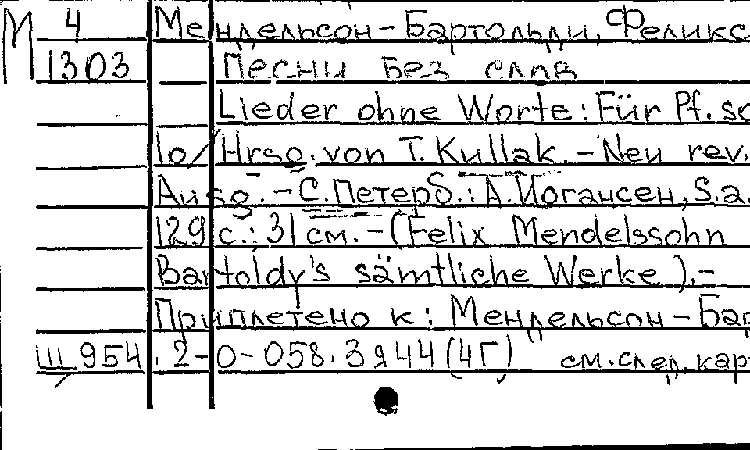 М 4 Мендельсон-Бартольди, Феликс
1303 Песни без слов
Lieder ohne Worte: Für Pf. so
lo/Hrsg. von T. Kullak.-Neu rev.
Ausg.-С.Петерб.: А.Иогансен, S.a.
129 с.; 31 см.-(Felix Mendelssohn
Bartoldy's sämtliche Werke).-
Приплетено к: Мендельсон-Бар
Ш 954.2-0-058.3Я44(4Г) см.след.кар